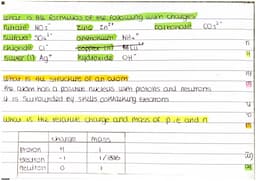 what is the formulas of the following with charges
nitrate NO3⁻ zinc Zn²⁺ carbonate CO3²⁻
sulfate SO4²⁻ ammonium NH4⁺
chloride Cl⁻ copper (II) Cu²⁺
silver (I) Ag⁺ hydroxide OH⁻
what is the structure of an atom
the atom has a positive nucleus with protons and neutrons
it is surrounded by shells containing electrons
what is the relative charge and mass of p, e and n
charge mass
proton +1 1
electron -1 1/1836
neutron 0 1